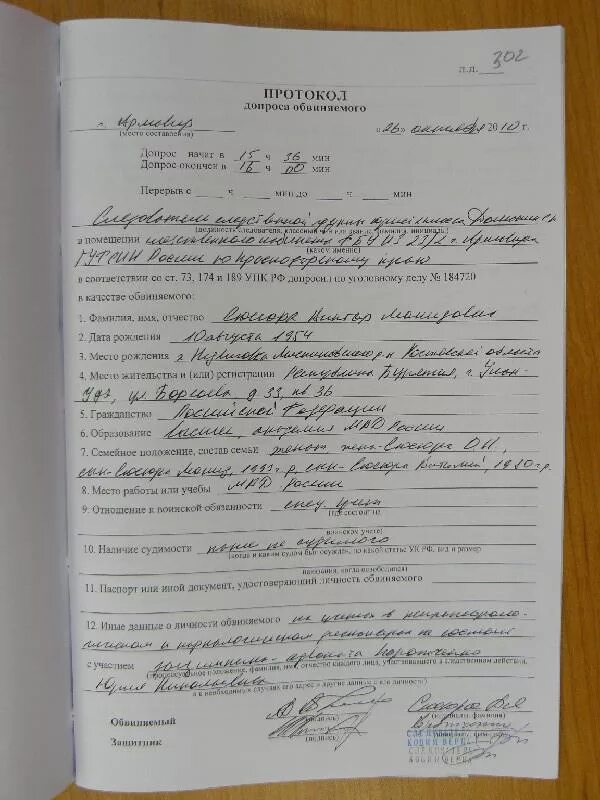 302
л.д.
ПРОТОКОЛ
допроса обвиняемого
г. Армавир
« 26 » октября 2010 г.
(место составления)
Допрос начат в 15 ч 36 мин
Допрос окончен в 16 ч 00 мин
Перерыв с ч мин до ч мин
Следователь следственной группы
(должность следователя, классный чин или звание, фамилия, инициалы)
в помещении следственного ФБУ ИЗ 23/2 г. Армавира
(каком именно)
ГУФСИН России по Краснодарскому краю
в соответствии со ст. 73, 174 и 189 УПК РФ допросил по уголовному делу № 184720
в качестве обвиняемого:
1. Фамилия, имя, отчество Сюсюра Виктор
2. Дата рождения 10 августа 1954
3. Место рождения Ростовской области
4. Место жительства и (или) регистрации Республика Бурятия, г. Улан-
Удэ, ул. Борсоева, д 33, кв 36
5. Гражданство Российской Федерации
6. Образование высшее, академия МВД России
7. Семейное положение, состав семьи женат, жена-Сюсюра О.Н.,
сын-Сюсюра сын-Сюсюра 1980 г.р.
8. Место работы или учебы МВД России
9. Отношение к воинской обязанности спец. учет
(где состоит на
воинском учете)
10. Наличие судимости ранее не судимого
(когда и каким судом был осужден, по какой статье УК РФ, вид и размер
наказания, когда освободился)
11. Паспорт или иной документ, удостоверяющий личность обвиняемого
12. Иные данные о личности обвиняемого на учетах в
и наркологическом диспансерах не состоит
с участием защитника-адвоката
(процессуальное положение, фамилия, имя, отчество каждого лица, участвовавшего в следственном действии,
Юрия Николаевича
а в необходимых случаях его адрес и другие данные о его личности)
Обвиняемый Сюсюра
(подпись) (инициалы, фамилия)
Защитник
(подпись) (инициалы, фамилия)
СЛЕДОВАТЕЛЬ